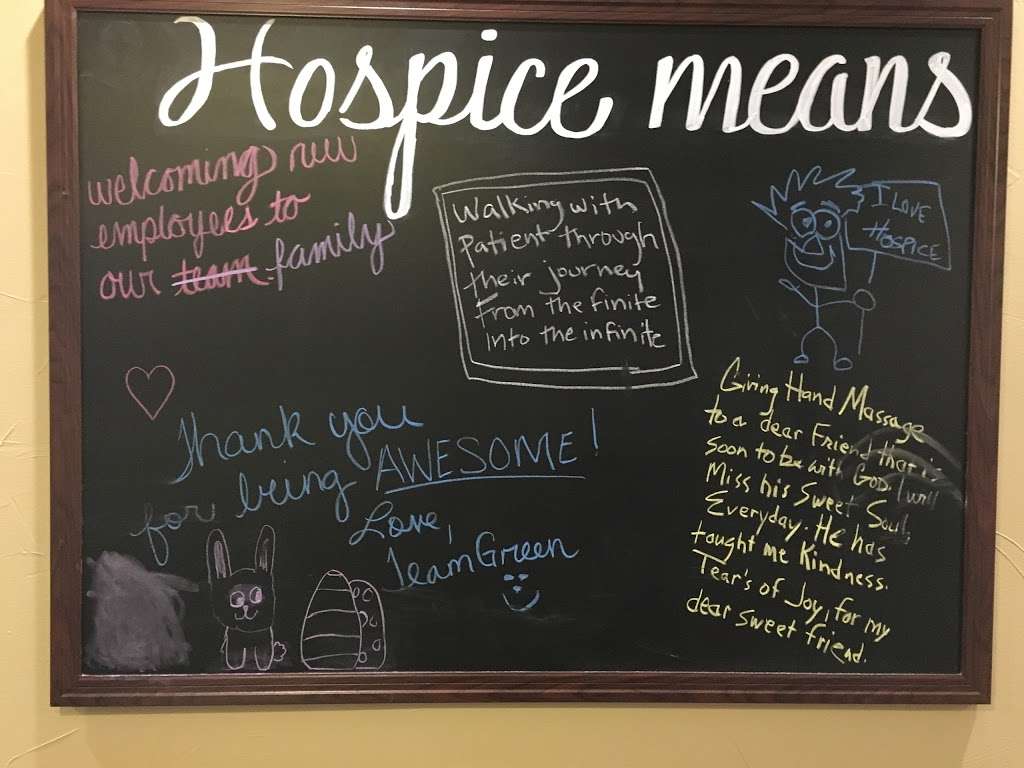 Hospice means
welcoming new
employees to
our team family
Walking with
patient through
their journey
From the finite
into the infinite
I LOVE
HOSPICE
Thank you
for being AWESOME!
Love,
Team Green
Giving Hand Massage
to a dear Friend that is
soon to be with God. I will
Miss his Sweet Soul,
Everyday. He has
taught me Kindness.
Tear's of Joy, for my
dear sweet friend.